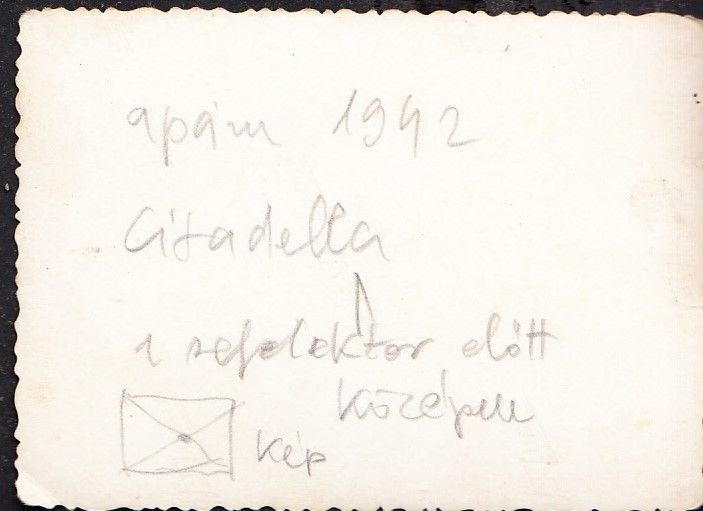 apám 1942
Citadella
1 reflektor előtt
középen
kép